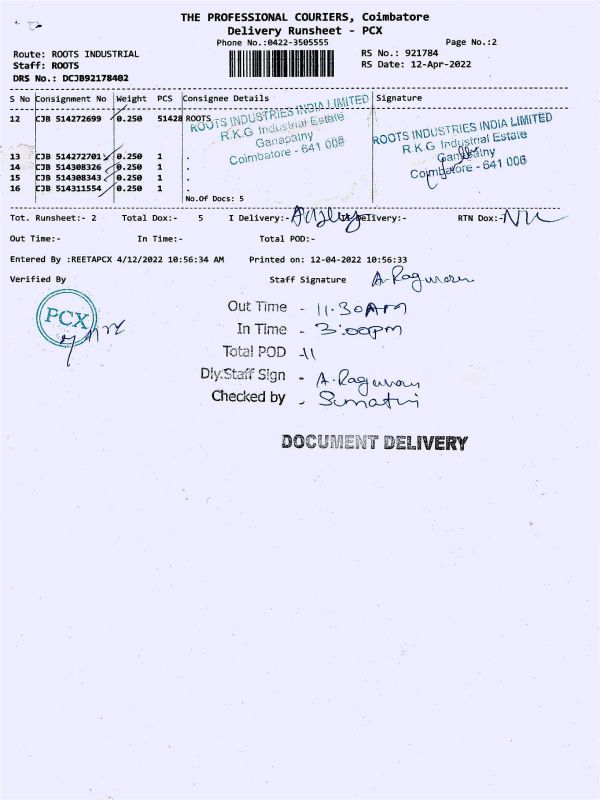 THE PROFESSIONAL COURIERS, Coimbatore
Delivery Runsheet - PCX
Phone No.:0422-3505555 Page No.:2
Route: ROOTS INDUSTRIAL RS No.: 921784
Staff: ROOTS RS Date: 12-Apr-2022
DRS No.: DCJB92178402
S No Consignment No Weight PCS Consignee Details Signature
12 CJB 514272699 0.250 51428 ROOTS
ROOTS INDUSTRIES INDIA LIMITED
R.K.G Industrial Estate
Ganapathy
Coimbatore - 641 006
ROOTS INDUSTRIES INDIA LIMITED
R.K.G Industrial Estate
Ganapathy
Coimbatore - 641 006
13 CJB 514272701 0.250 1 .
14 CJB 514308326 0.250 1 .
15 CJB 514308343 0.250 1 .
16 CJB 514311554 0.250 1 .
No.Of Docs: 5
Tot. Runsheet:- 2 Total Dox:- 5 I Delivery:- Delivery:- RTN Dox:-
Out Time:- In Time:- Total POD:-
Entered By :REETAPCX 4/12/2022 10:56:34 AM Printed on: 12-04-2022 10:56:33
Verified By Staff Signature A. Raguvaran
PCX
Out Time - 11.30AM
In Time - 3.00pm
Total POD - 11
Dly.Staff Sign - A. Raguvaran
Checked by - Sumathi
DOCUMENT DELIVERY